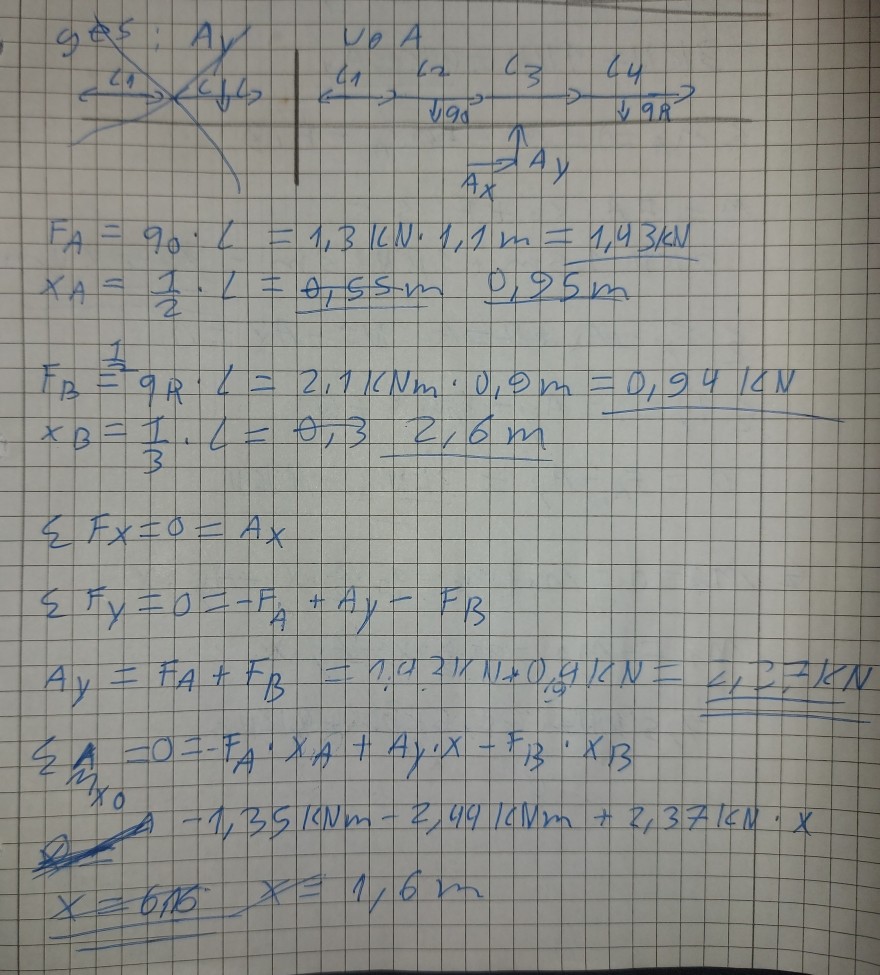 ges: Ay
L1
L1 L2 L3 L4
q0 qR
Ax Ay
FA = q0 · L = 1,3 KN · 1,1 m = 1,43 KN
xA = 1/2 · L = 0,55 m 0,95 m
FB = 1/2 qR · L = 2,1 KNm · 0,9 m = 0,94 KN
xB = 1/3 · L = 0,3 2,6 m
Σ Fx = 0 = Ax
Σ Fy = 0 = -FA + Ay - FB
Ay = FA + FB = 1,43 KN + 0,94 KN = 2,37 KN
Σ Mx0 = 0 = -FA · xA + Ay · x - FB · xB
-1,35 KNm - 2,44 KNm + 2,37 KN · x
x = 1,6 m